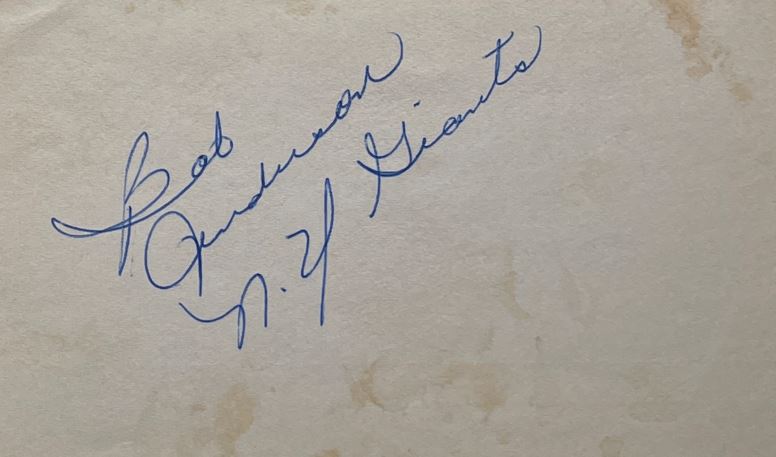 Bob
Anderson
N.Y Giants